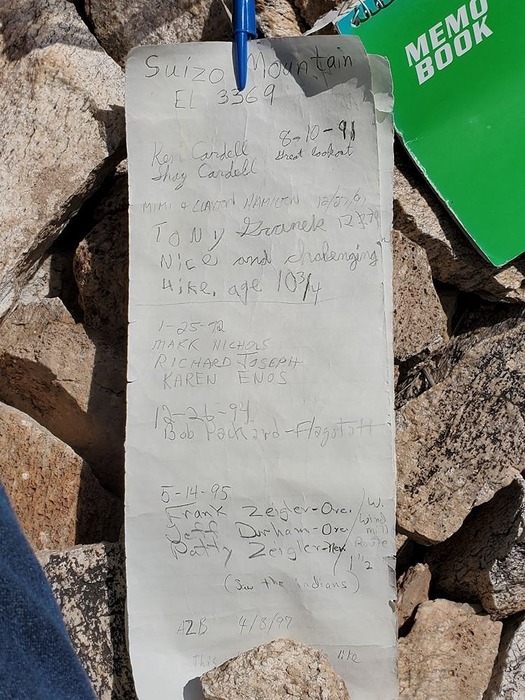 MEMO
BOOK
Suizo Mountain
EL 3369
8-10-91
Ken Cardell Great lookout
Shay Cardell
MIMI & CLAYTON HAMILTON
Tony
Nice and challenging
Hike, age 10 3/4
1-25-92
MARK NICHOLS
RICHARD JOSEPH
KAREN ENOS
12-26-94
Bob Packard-Flagstaff
5-14-95
Frank Zeigler-Ore.
Jeff Durham-Ore.
Patty Zeigler-Nev.
W.
Wind
mill
Route
(Saw the Indians)
AZB 4/8/97
This